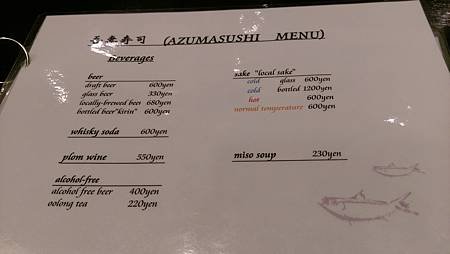 吾妻寿司 (AZUMASUSHI MENU)
Beverages
beer
draft beer 600yen
glass beer 350yen
locally-brewed beer 680yen
bottled beer"kirin" 600yen
whisky soda 600yen
plom wine 550yen
alcohol-free
alcohol free beer 400yen
oolong tea 220yen
sake "local sake"
cold glass 600yen
cold bottled 1200yen
hot 600yen
normal temperature 600yen
miso soup 230yen